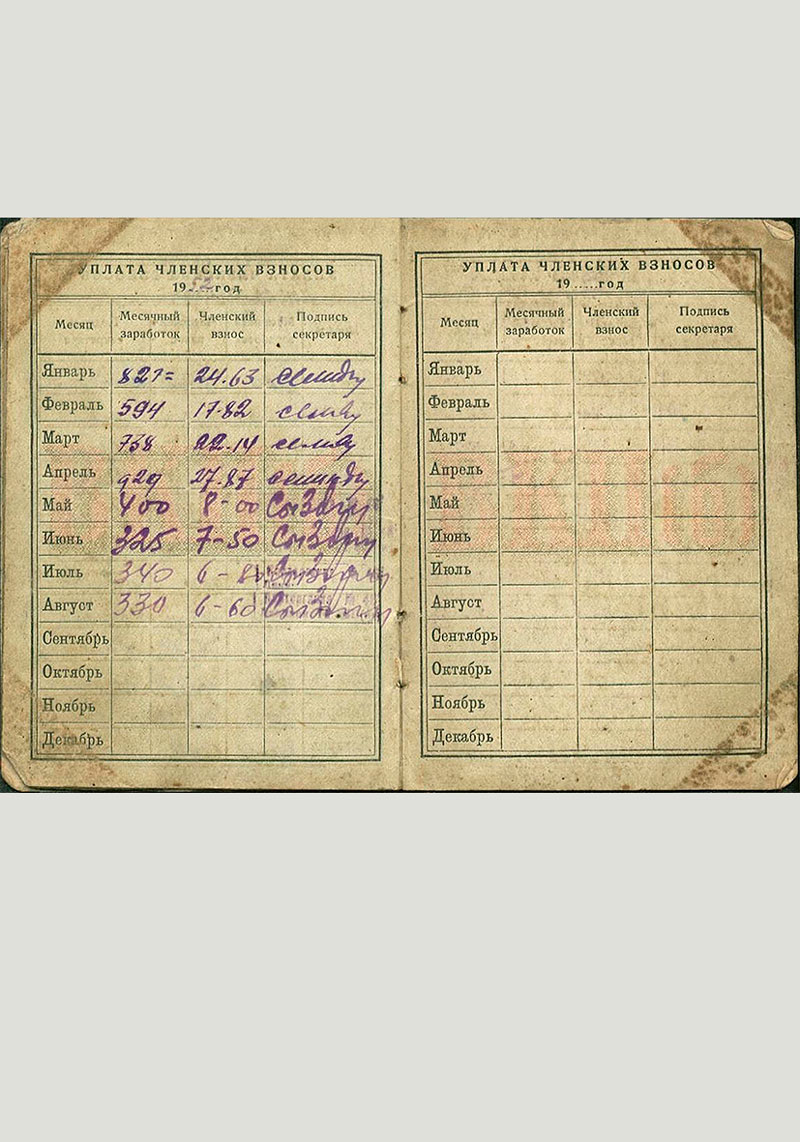 УПЛАТА ЧЛЕНСКИХ ВЗНОСОВ
19 год
Месяц Месячный заработок Членский взнос Подпись секретаря
Январь 821= 24.63
Февраль 594 17.82
Март 738 22.14
Апрель 929 27.87
Май 400 8-00
Июнь 325 7-50
Июль 340 6-80
Август 330 6-60
Сентябрь
Октябрь
Ноябрь
Декабрь
УПЛАТА ЧЛЕНСКИХ ВЗНОСОВ
19.....год
Месяц Месячный заработок Членский взнос Подпись секретаря
Январь
Февраль
Март
Апрель
Май
Июнь
Июль
Август
Сентябрь
Октябрь
Ноябрь
Декабрь